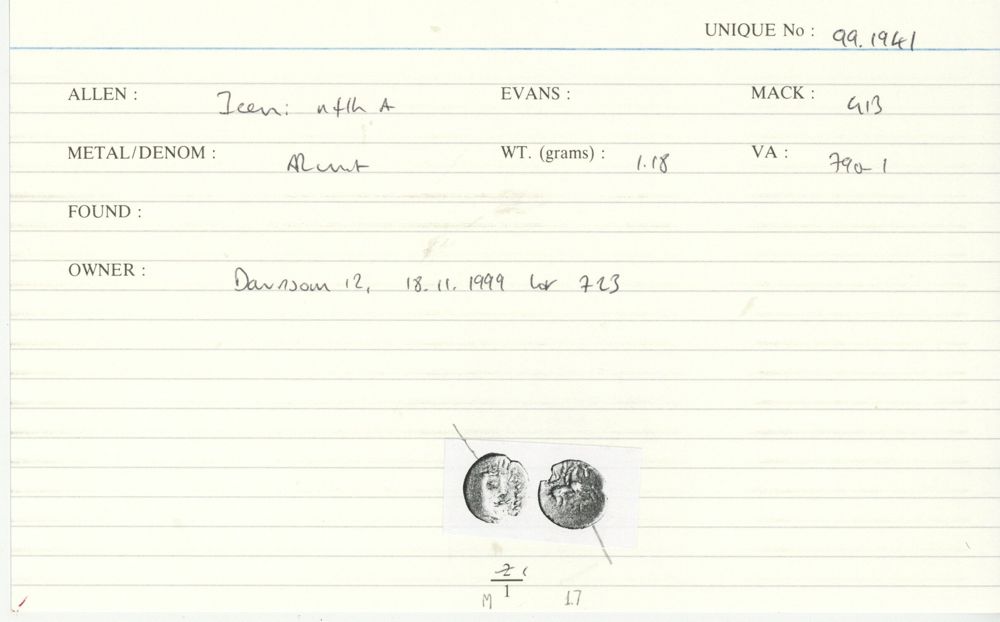 UNIQUE No : 99.1941
ALLEN : Iceni EVANS : MACK : 413
METAL/DENOM : AR unit WT. (grams) : 1.18 VA : 790-1
FOUND :
OWNER : Davisson 12, 18.11.1999 lot 723
1
M 1.7